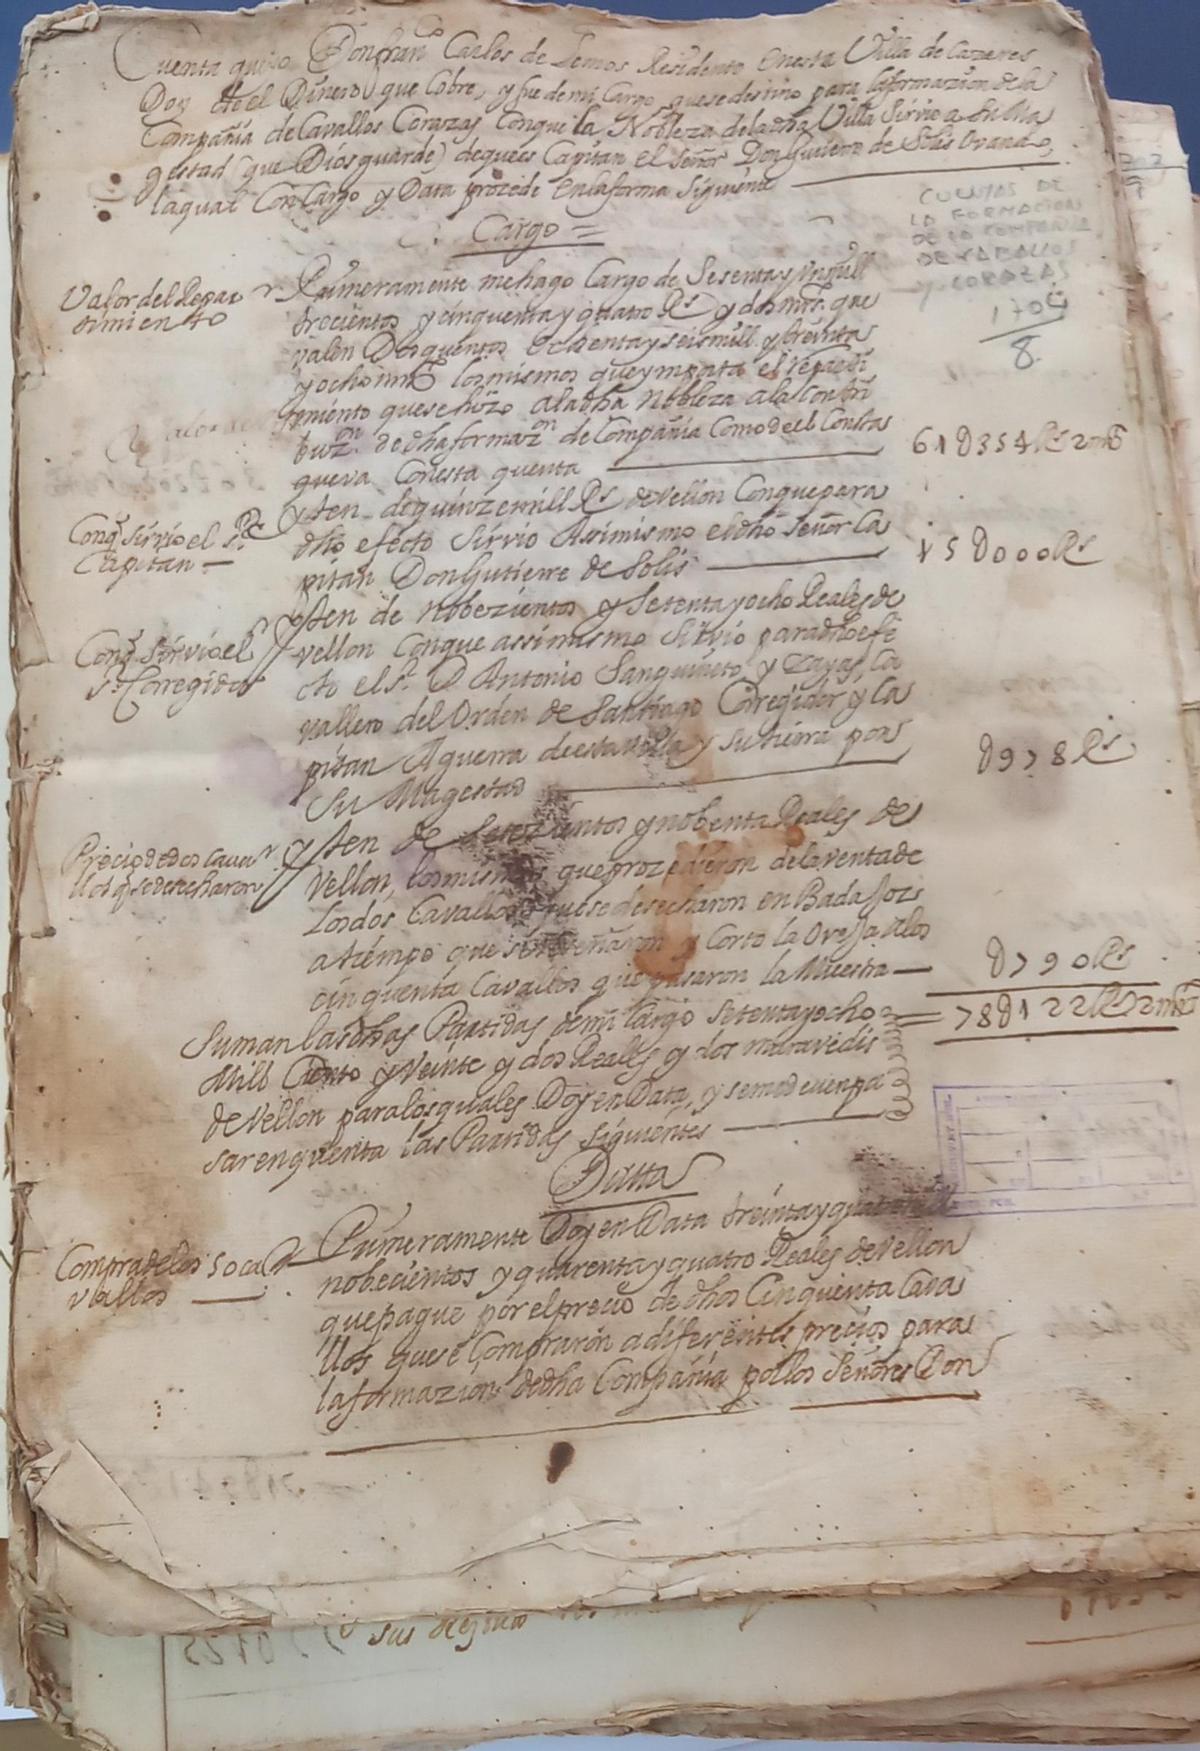 Cuenta que yo Don fran.co Carlos de Lemos Residente en esta Villa de Cazeres
Doy de el Dinero que Cobre, y fue de mi Cargo que se destino para la formazion de la
Compañia de Cavallos Corazas Con que la Nobleza de la dha Villa Sirvio a Su Ma
gestad (que Dios guarde) de que es Capitan el Señor Don Gutierre de Solis Ovando,
la qual Con Cargo y Data prozede en la forma Siguiente
Cargo =
CUENTAS DE
LA FORMACION
DE LA COMPAÑIA
DE CABALLOS
CORAZAS
170
8.
Valor del Repar
timiento
Primeramente me hago Cargo de Sesenta y Un mill
trecientos y cinquenta y quatro Rs y dos mrs. que
valen Dos quentos ochenta y seis mill y treinta
y ocho mrs los mismos que ymporta el reparti
miento que se hizo a la dha Nobleza a la Contri
buzon de dha formazon de Compañia Como de el Consta
que va Con esta quenta
61U354 Rs 2 mrs
Conq Sirvio el Sr
Capitan
Yten de quinze mill Rs de Vellon Con que para
dho efecto Sirvio Assimismo el dho Señor Ca
pitan Don Gutierre de Solis
15U000 Rs
Conq Sirvio el
Sr Corregidor
Yten de Nobezientos y Setenta y ocho Reales de
vellon Con que assimismo Sirvio para dho efe
cto el Sr. D Antonio Sanguineto y Zayas, Ca
vallero del Orden de Santiago Corregidor y Ca
pitan A guerra de esta Villa y Su tierra por
Su Magestad
U978 Rs
Precio de dos Cava
llos q se desecharon
Yten de Setezientos y nobenta Reales de
Vellon, los mismos que prozedieron de la venta de
los dos Cavallos que se desecharon en Badajoz
a tiempo que se reseñaron y Corto la Oreja a los
cinquenta Cavallos que pasaron la Muestra
U790 Rs
Suman las dhas Partidas de mi Cargo Setenta y ocho
Mill Ciento y Veinte y dos Reales y dos maravedis
de Vellon para los quales Doy en Data, y se me de ven pa
sar en quenta las Partidas Siguientes
78U122 Rs 2 mrs
Datta
Compra de los 50 ca
vallos
Primeramente Doy en Data treinta y quatro
nobecientos y quarenta y quatro Reales de Vellon
que pague por el precio de dhos Cinquenta Cava
llos que se Compraron a diferentes precios para
la formazion de dha Compañia por los Señores Don